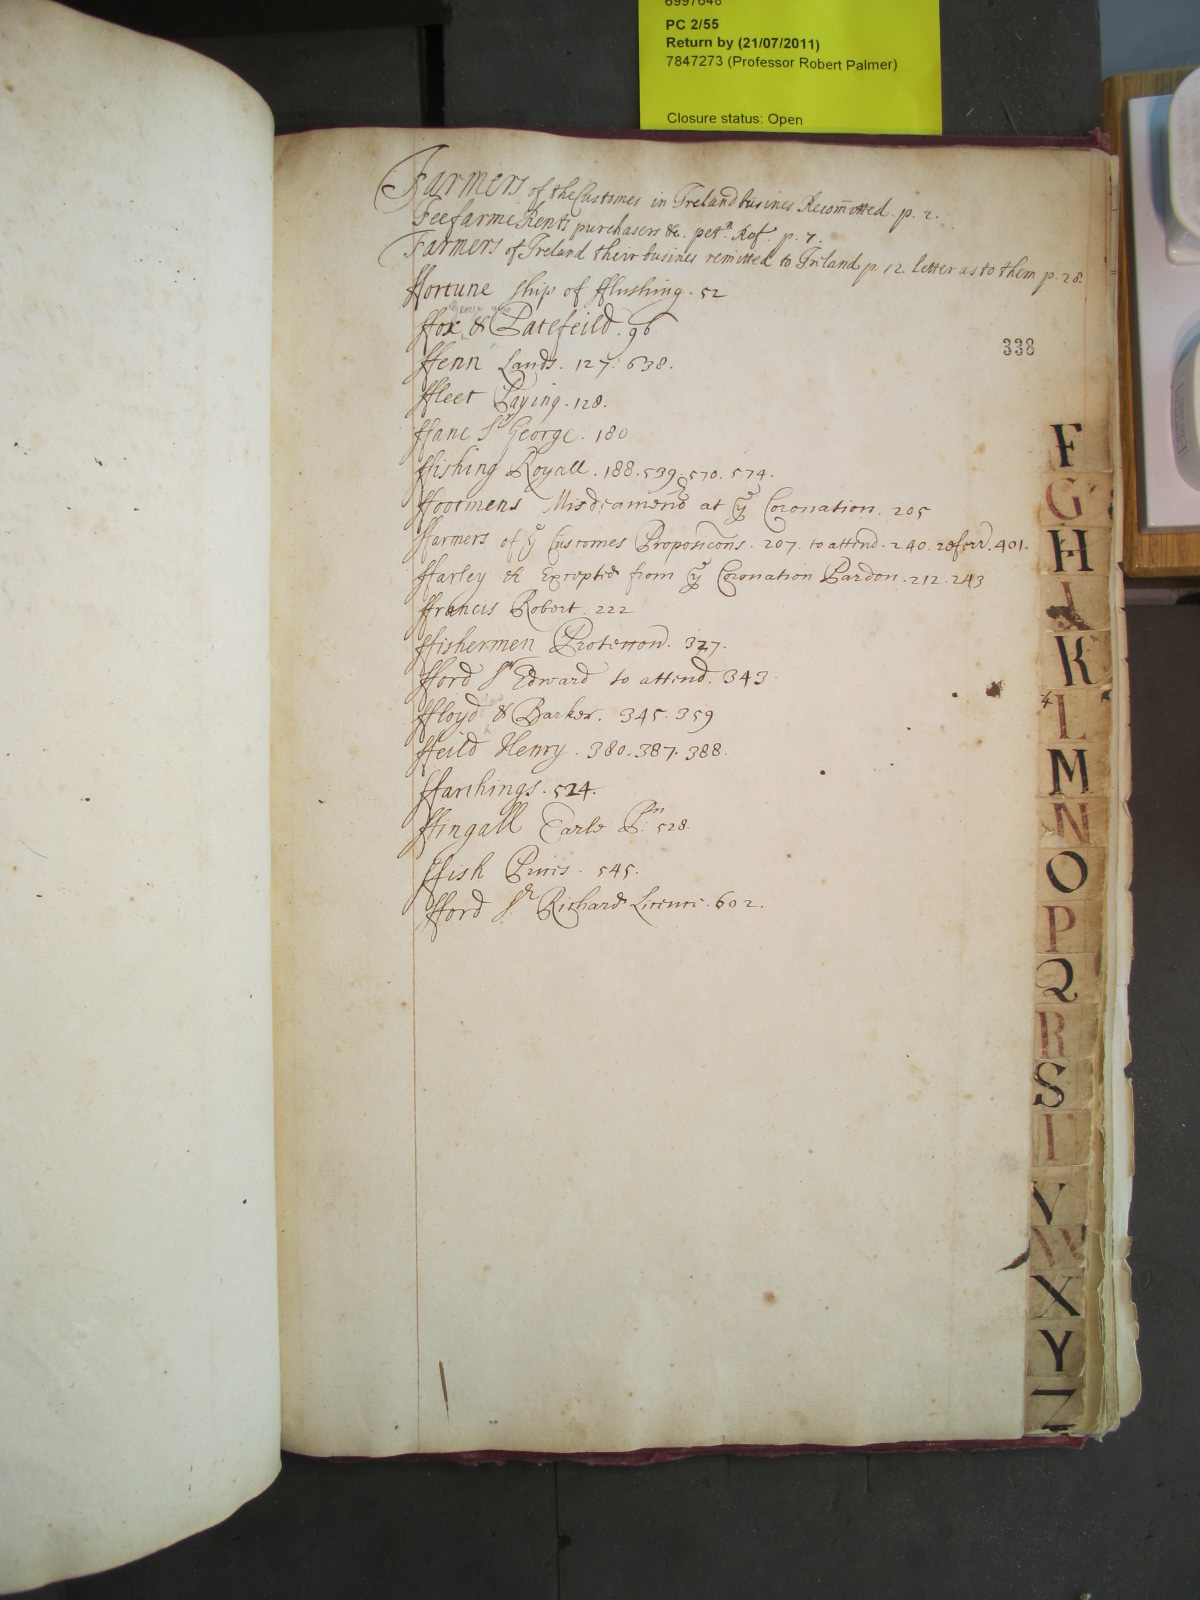 6997646
PC 2/55
Return by (21/07/2011)
7847273 (Professor Robert Palmer)
Closure status: Open
Farmers of the Customes in Ireland busines Recom̄itted. p. 2.
Feefarme Rents purchasers &c. petn. Ref. p. 7.
Farmers of Ireland their busines remitted to Irland p. 12. letter as to them p. 28.
ffortune ship of fflushing. 52
ffox & Patefeild. 96
338
ffenn Lands. 127. 638.
ffleet Paying. 128.
ffane Sr George. 180
ffishing Royall. 188. 539. 570. 574.
ffootmens Misdeamenrs at ye Coronation. 205
ffarmers of ye Customes Proposicons. 207. to attend. 240. referrd. 401.
ffarley &c Excepted from ye Coronation Pardon. 212. 243
ffrancis Robert. 222
ffishermen Protection. 327.
fford Sr Edward to attend. 343
ffloyd & Barker. 345. 359
ffeild Henry. 380. 387. 388.
ffarthings. 524.
ffingall Earle Pn. 528
ffish Prices. 545.
fford Sr Richard Licence. 602.
F
G
H
I
K
L
M
N
O
P
Q
R
S
T
V
W
X
Y
Z